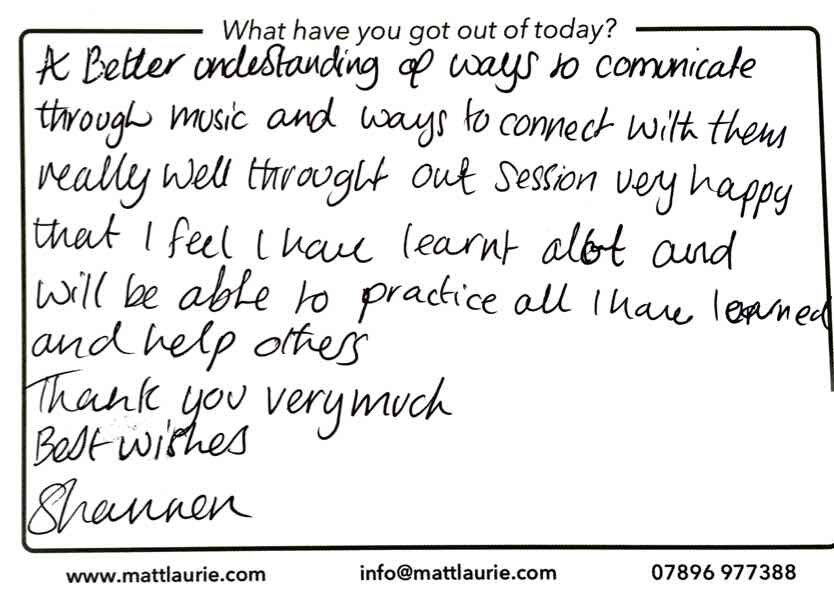 What have you got out of today?
A Better ondestanding of ways to comunicate
through music and ways to connect with them
really well throught out session very happy
that I feel I have learnt alot and
will be able to practice all I have learned
and help others
Thank you very much
Best wishes
Shannen
www.mattlaurie.com info@mattlaurie.com 07896 977388